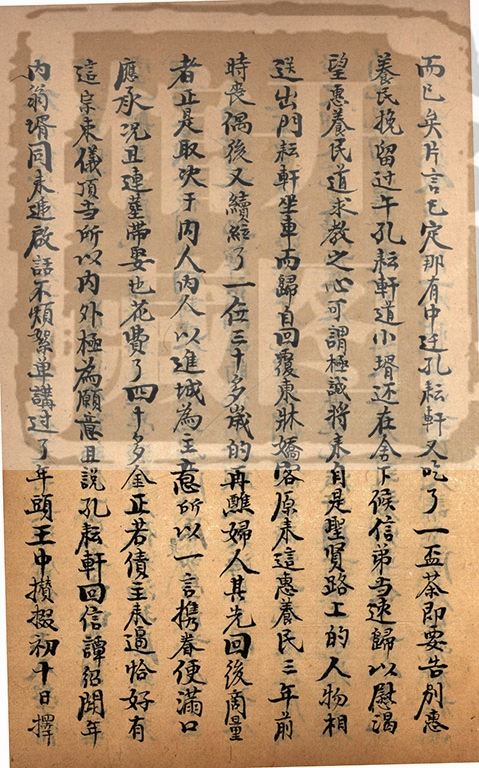 而已矣片言已定那有中迁孔耘軒又吃了一盃茶即要告別惠
養民挽留过午孔耘軒道小壻还在舍下候信弟当速歸以慰渴
望惠養民道求教之心可謂極誠将来自是聖賢路上的人物相
送出門耘軒坐車而歸自回覆東牀嬌客原来這惠養民三年前
時喪偶後又續絃了一位三十多歲的再醮婦人其先回後商量
者正是取决于内人内人以進城為主意所以一言携眷便滿口
應承况且連塟帶娶也花費了四十多金正若債主来逼恰好有
這宗束儀頂当所以内外極為願意且說孔耘軒回信譚紹聞年
内翁壻同来遞啟話不煩絮单講过了年頭王中攢掇初十日擇